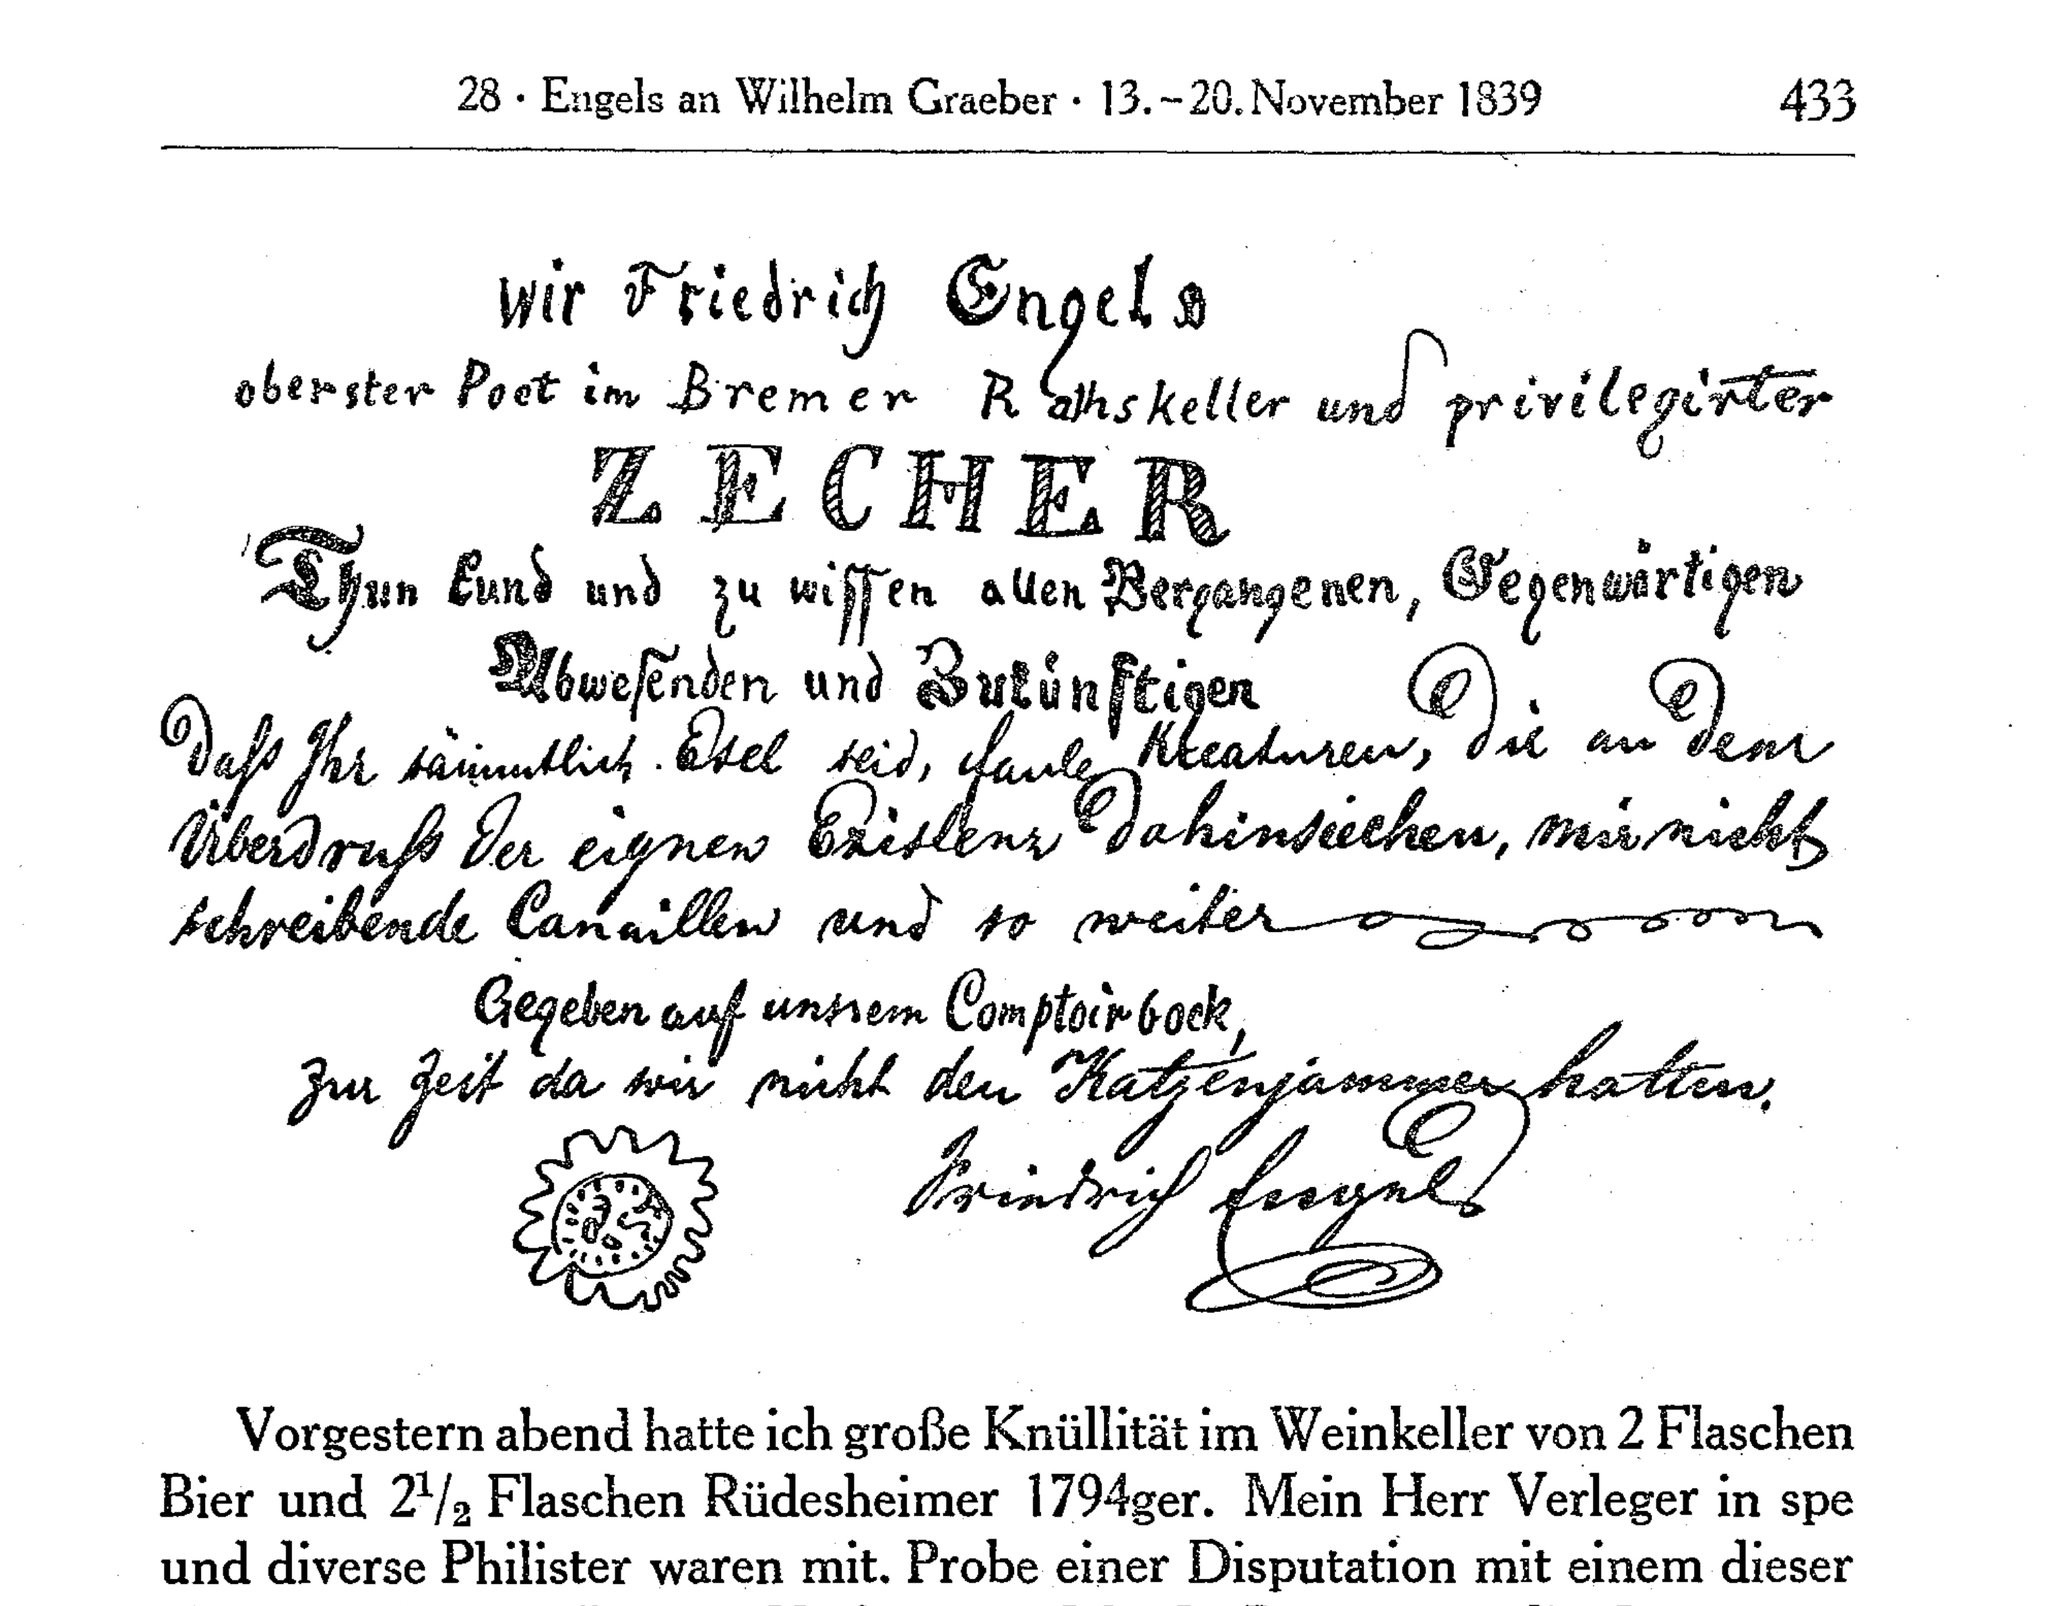 28 · Engels an Wilhelm Graeber · 13.–20. November 1839 433
Wir Friedrich Engels
oberster Poet im Bremer Rathskeller und privilegirter
ZECHER
Thun kund und zu wissen allen Vergangenen, Gegenwärtigen
Abwesenden und Zukünftigen
Daß Ihr sämmtlich Esel seid, faule Kreaturen, die an dem
Überdruß der eignen Existenz dahinsiechen, mir nicht
schreibende Canaillen und so weiter
Gegeben auf unsrem Comptoirbock,
zur Zeit da wir nicht den Katzenjammer hatten.
Friedrich Engels
Vorgestern abend hatte ich große Knüllität im Weinkeller von 2 Flaschen
Bier und 2½ Flaschen Rüdesheimer 1794ger. Mein Herr Verleger in spe
und diverse Philister waren mit. Probe einer Disputation mit einem dieser